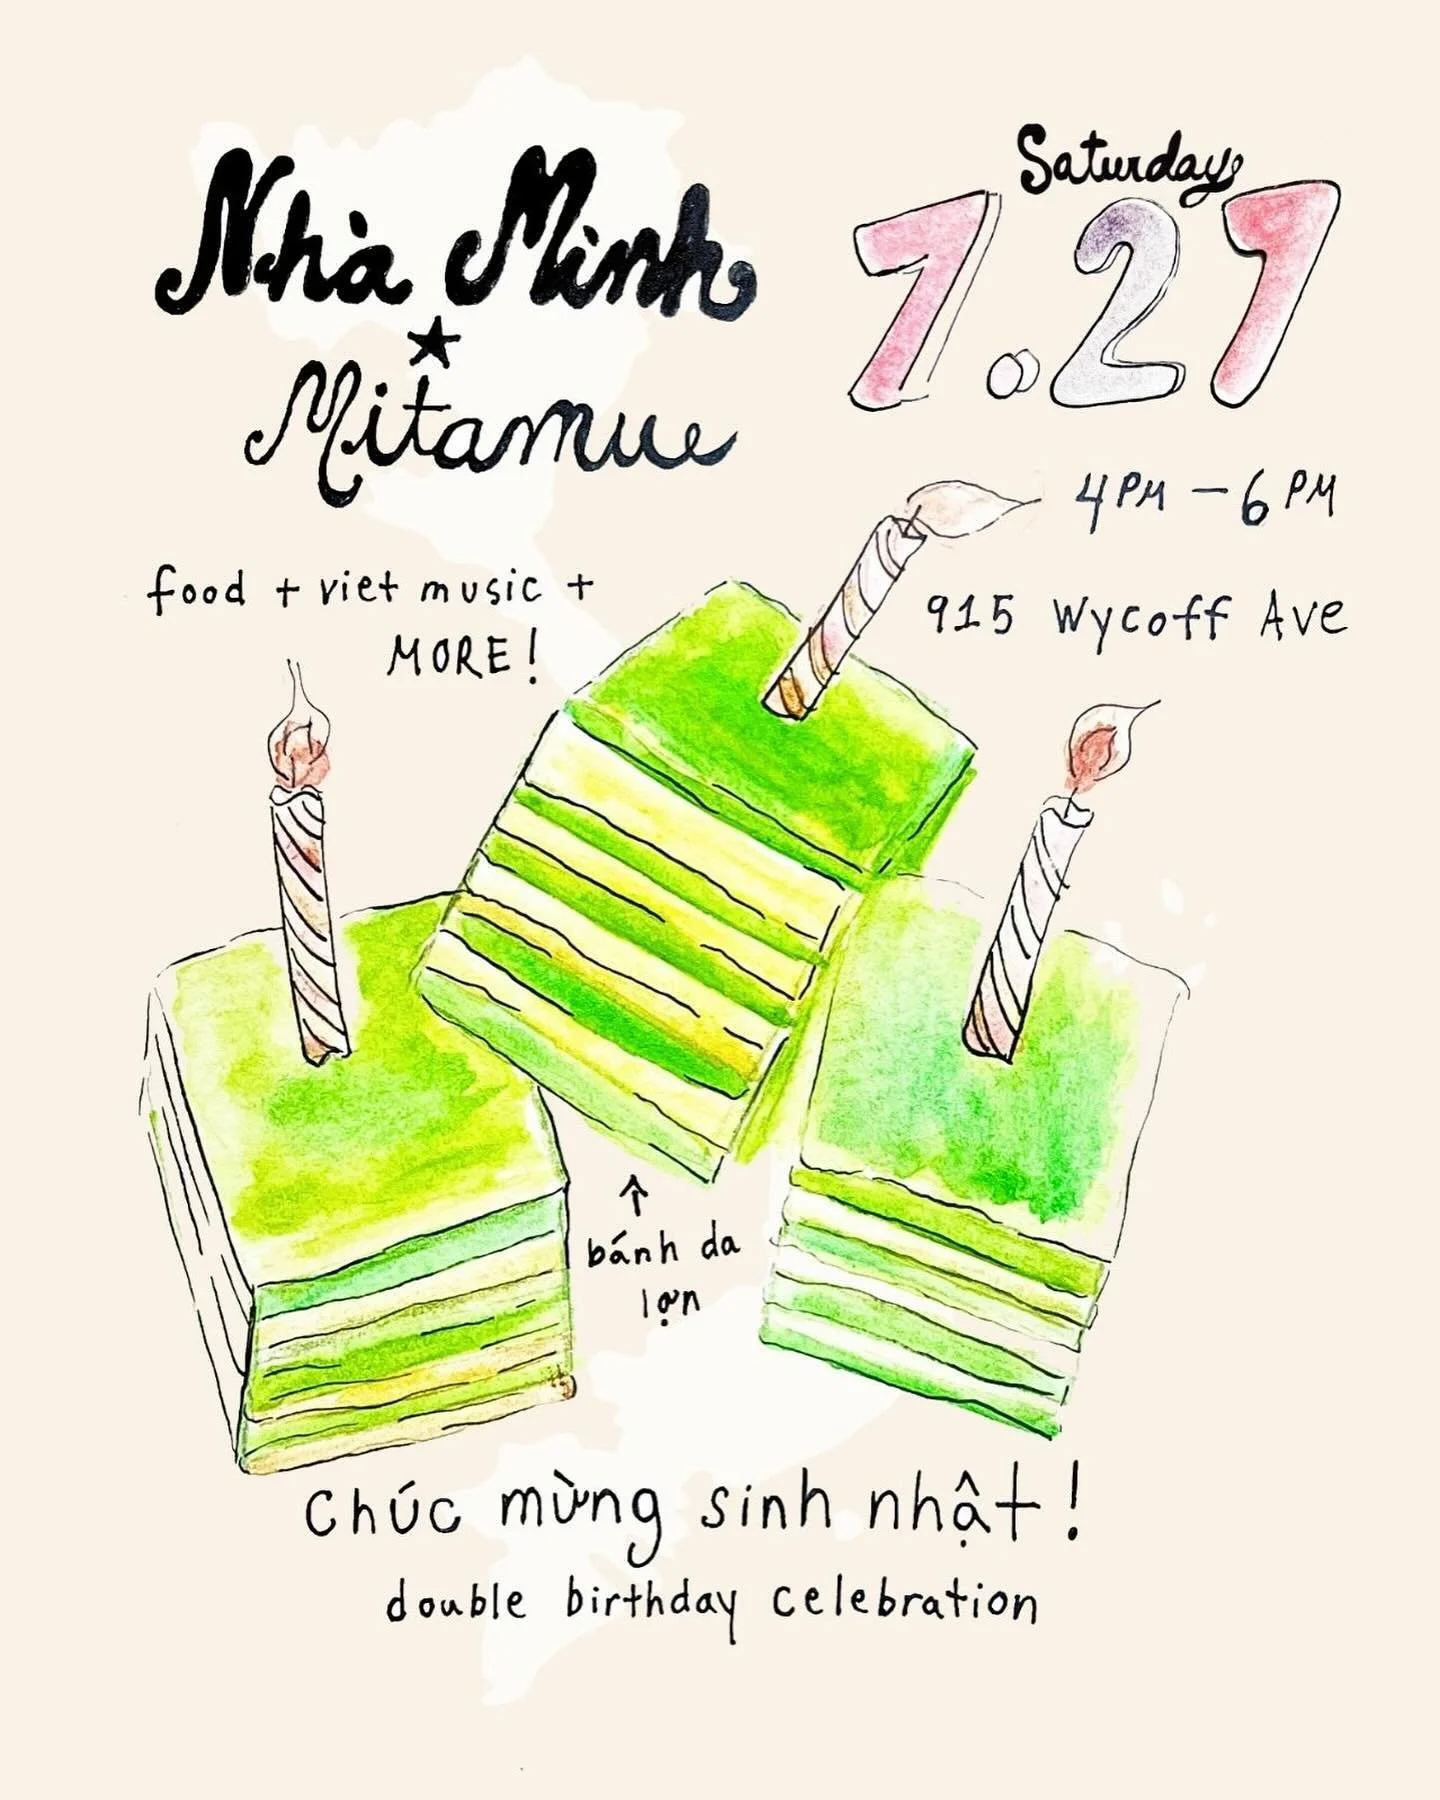 Nhà Mình
Mitamue
Saturday
7.27
4PM - 6PM
915 Wycoff Ave
food + viet music +
MORE!
bánh da
lợn
chúc mừng sinh nhật!
double birthday celebration